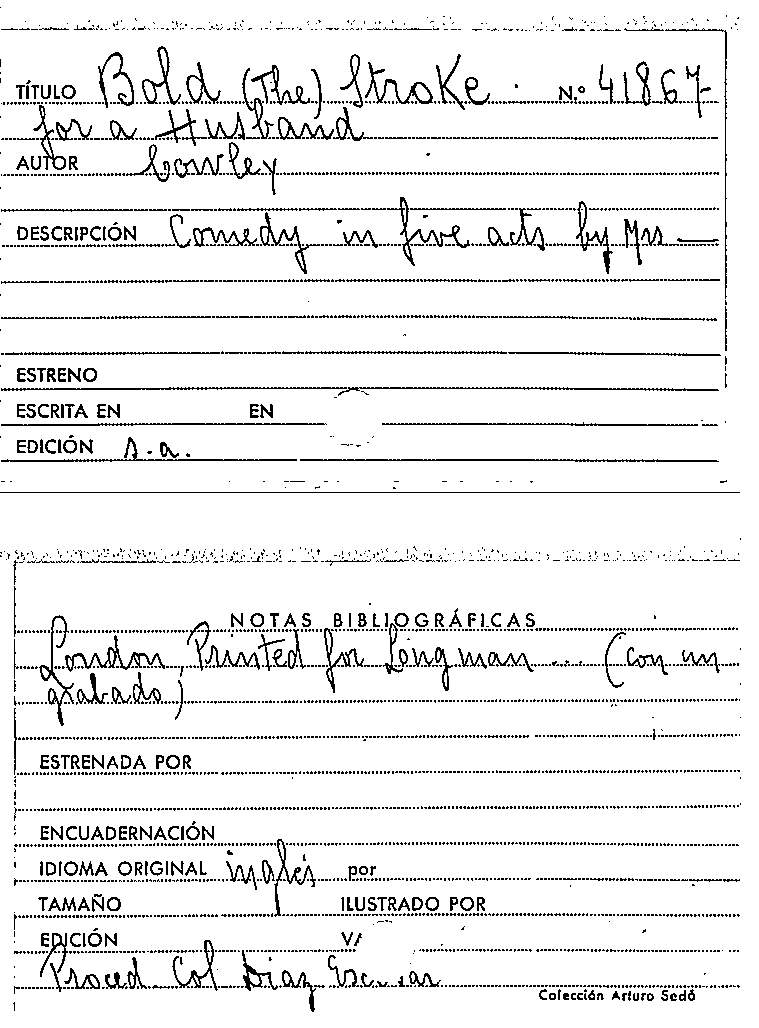 TÍTULO Bold (The) Stroke. N.º 41867-
for a Husband
AUTOR Cowley
DESCRIPCIÓN Comedy in five acts by Mrs —
ESTRENO
ESCRITA EN EN
EDICIÓN s.a.
NOTAS BIBLIOGRÁFICAS
London, Printed for Longman ... (con un
grabado)
ESTRENADA POR
ENCUADERNACIÓN
IDIOMA ORIGINAL inglés por
TAMAÑO ILUSTRADO POR
EDICIÓN V/
Proced. Col Diaz
Colección Arturo Sedó